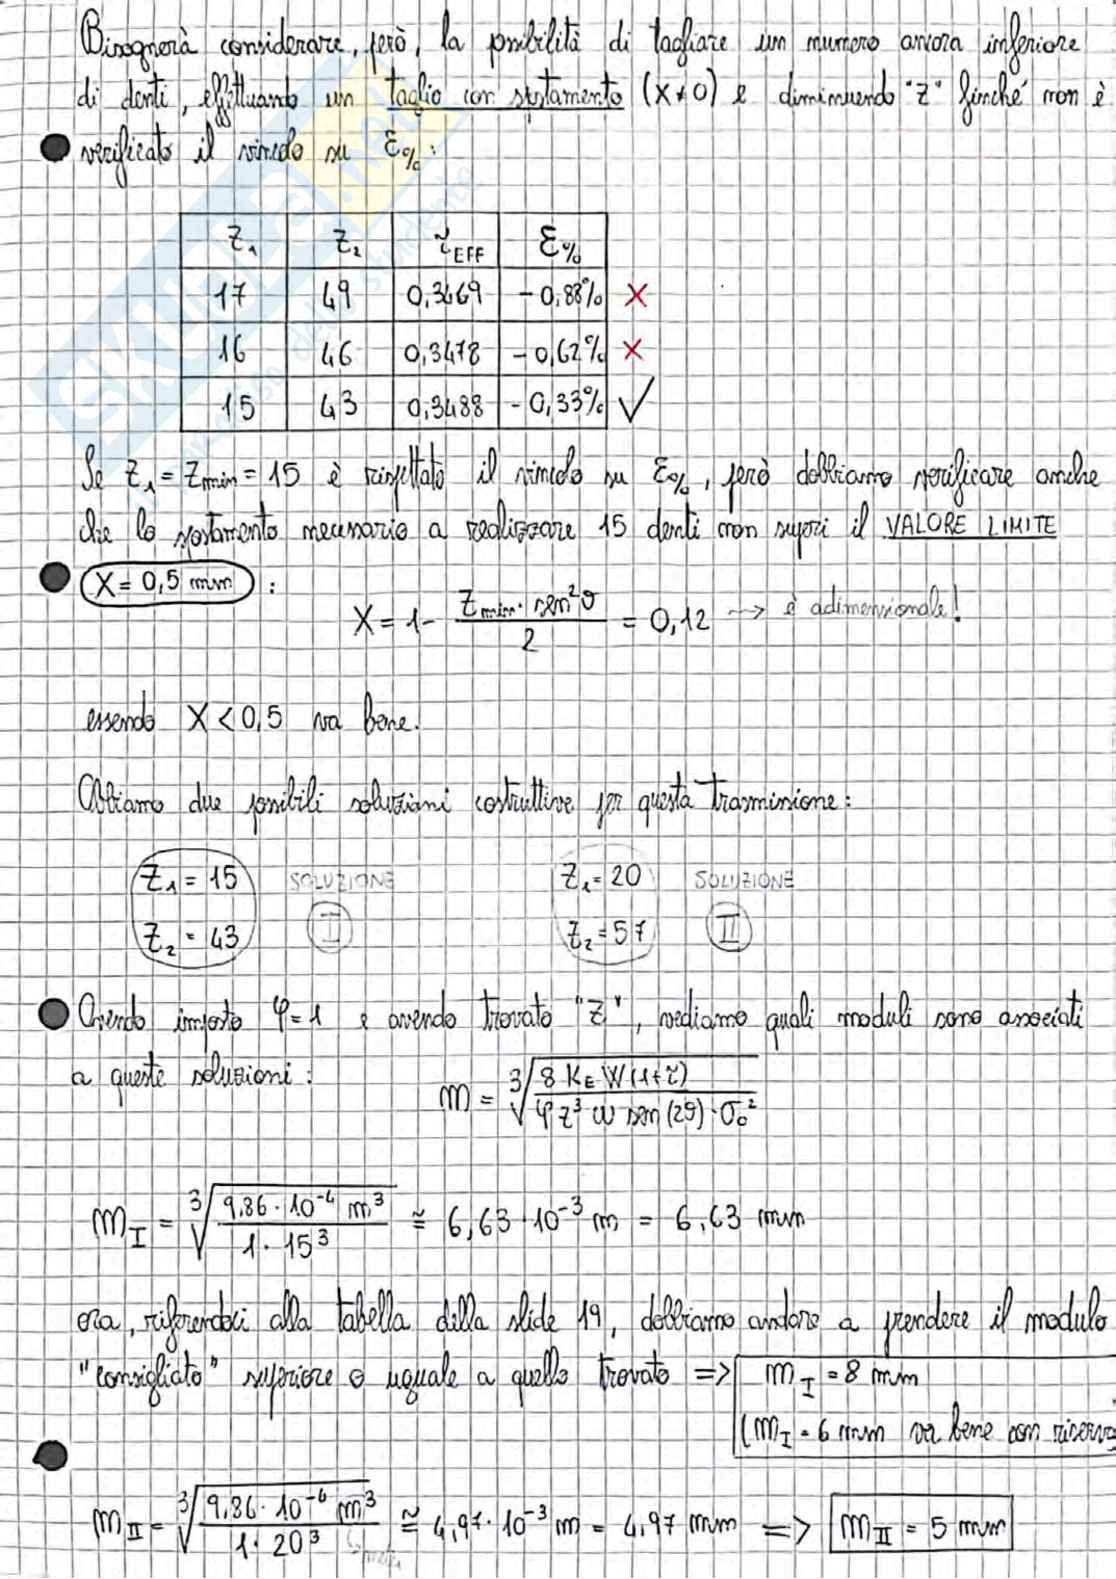 Bisognerà considerare, però, la possibilità di tagliare un numero ancora inferiore
di denti, effettuando un taglio con spostamento (X≠0) e diminuendo "Z" finché non è
verificato il vincolo su ε%:
Z₁ Z₂ τEFF ε%
17 49 0,3469 -0,88% ×
16 46 0,3478 -0,62% ×
15 43 0,3488 -0,33% ✓
Se Z₁ = Zmin = 15 è rispettato il vincolo su ε%, però dobbiamo verificare anche
che lo spostamento necessario a realizzare 15 denti non superi il VALORE LIMITE
X = 0,5 mm :
X = 1 - Zmin · sen²θ / 2 = 0,12 → è adimensionale!
essendo X < 0,5 va bene.
Abbiamo due possibili soluzioni costruttive per questa trasmissione:
Z₁ = 15 SOLUZIONE Z₁ = 20 SOLUZIONE
Z₂ = 43 I Z₂ = 57 II
Avendo imposto φ = 1 e avendo trovato "Z", vediamo quali moduli sono associati
a queste soluzioni: m = ∛(8 KE W (1+τ) / φ z³ ω sen(2θ) · σ₀²)
mI = ∛(9,86 · 10⁻⁴ m³ / 1 · 15³) ≅ 6,63 · 10⁻³ m = 6,63 mm
ora, riferendoci alla tabella della slide 19, dobbiamo andare a prendere il modulo
"consigliato" superiore o uguale a quello trovato => mI = 8 mm
(mI = 6 mm va bene con riserva
mII = ∛(9,86 · 10⁻⁴ m³ / 1 · 20³) ≅ 4,97 · 10⁻³ m = 4,97 mm => mII = 5 mm
SKUOLA.net